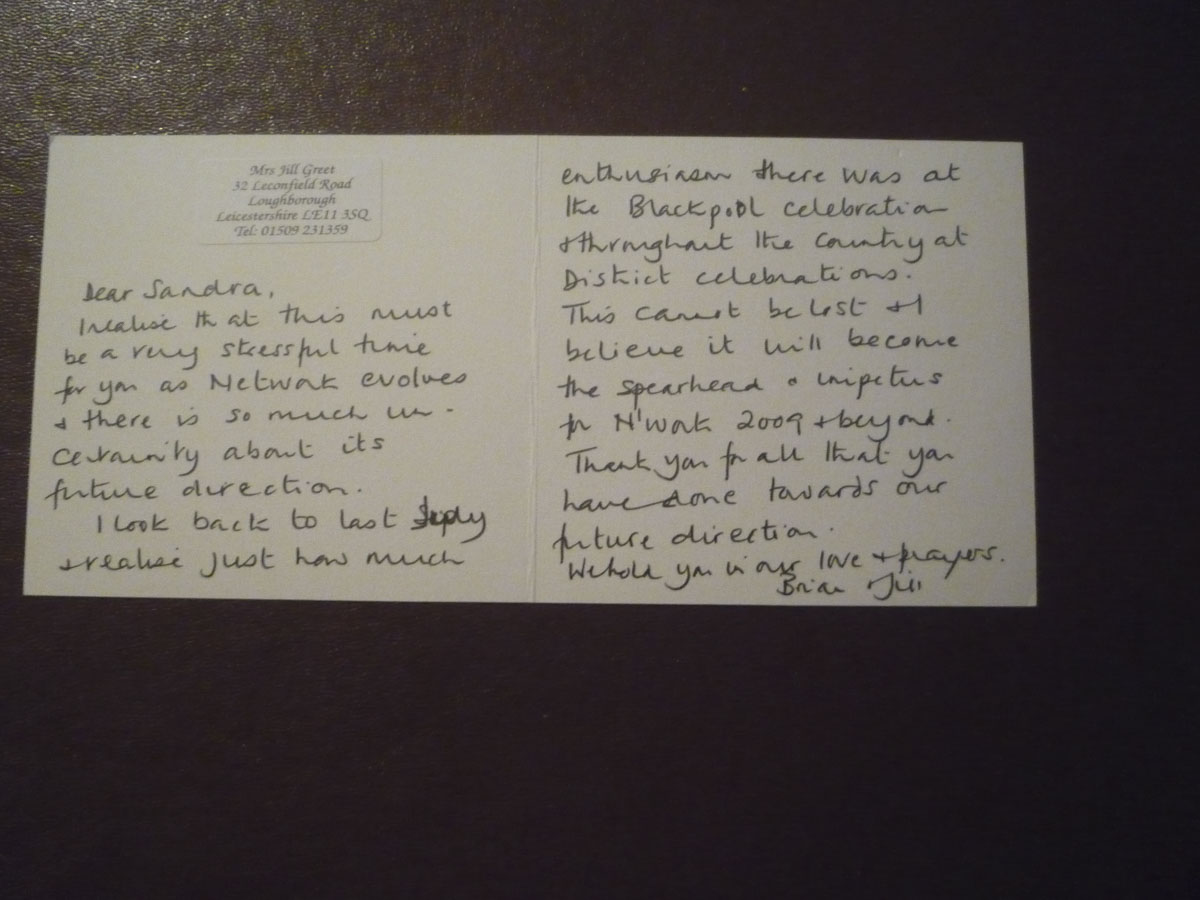 Mrs Jill Greet
32 Leconfield Road
Loughborough
Leicestershire LE11 3SQ
Tel: 01509 231359
Dear Sandra,
I realise that this must
be a very stressful time
for you as Network evolves
+ there is so much un-
certainity about its
future direction.
I look back to last
+ realise just how much
enthusiasm there was at
the Blackpool celebration
+ throughout the country at
District celebrations.
This cannot be lost + I
believe it will become
the spearhead o impetus
for N'work 2009 + beyond.
Thank you for all that you
have done towards our
future direction.
We hold you in our love + prayers.
Brian + Jill